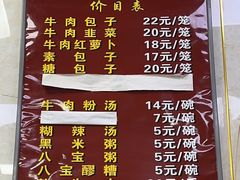 价目表
牛肉包子 22元/笼
牛肉韭菜 20元/笼
牛肉红萝卜 18元/笼
素包子 17元/笼
糖包子 20元/笼
牛肉粉汤 14元/碗
7元/碗
糊辣汤 5元/碗
黑米粥 5元/碗
八宝粥 5元/碗
八宝醪糟 5元/碗